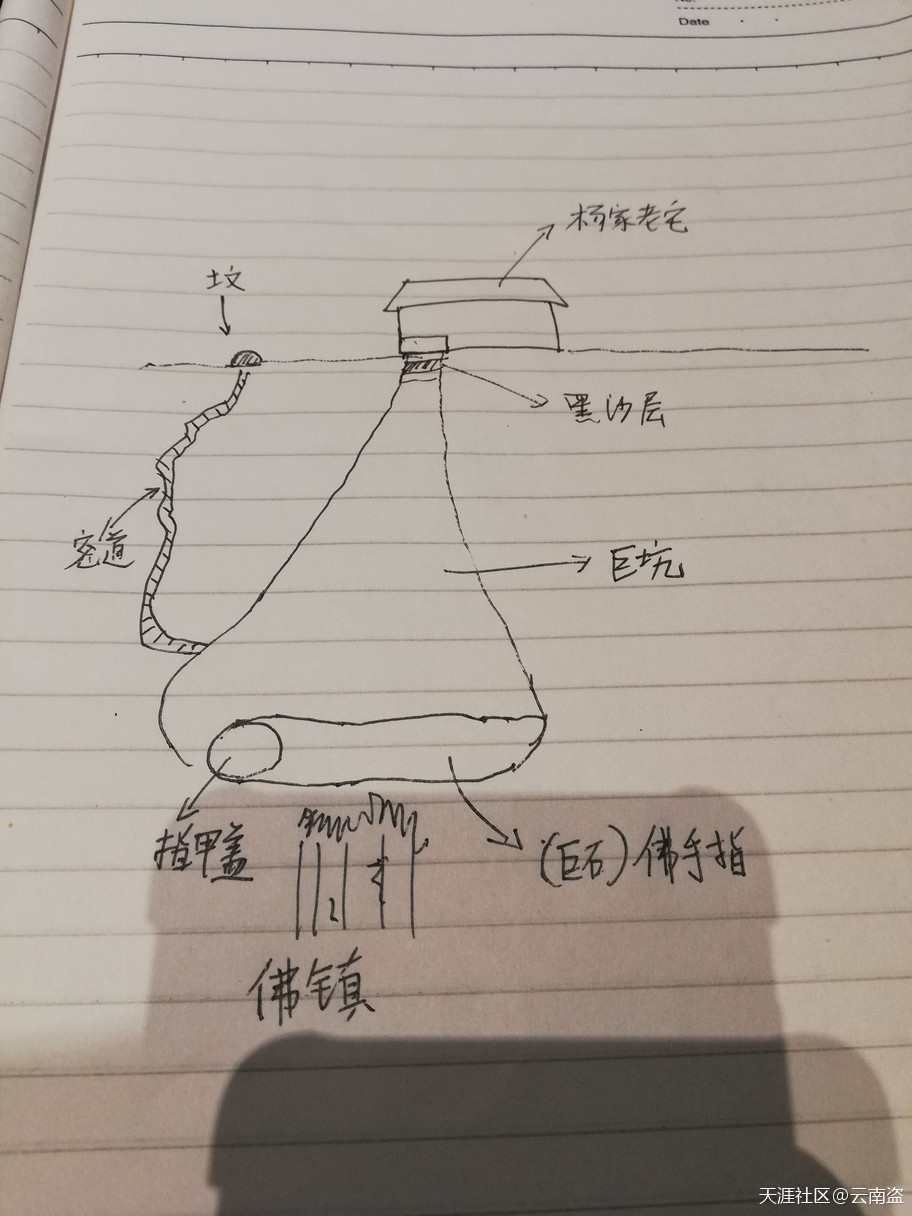 Date
杨家老宅
坟
黑沙层
密道
巨坑
指甲盖
(巨石)佛手指
佛镇
天涯社区@云南盗